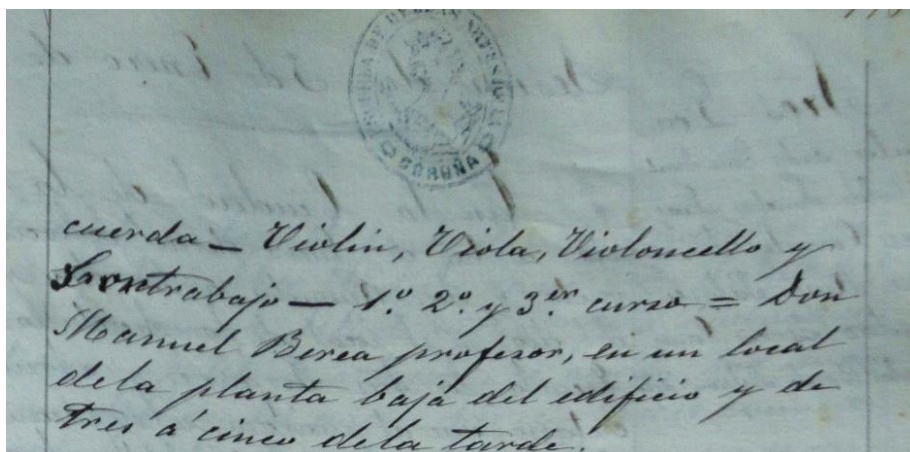 ESCUELA DE BELLAS ARTES
CORUÑA
cuerda — Violin, Viola, Violoncello y
Contrabajo — 1.º 2.º y 3.er curso = Don
Manuel Berea profesor, en un local
dela planta baja del edificio y de
tres á cinco dela tarde.